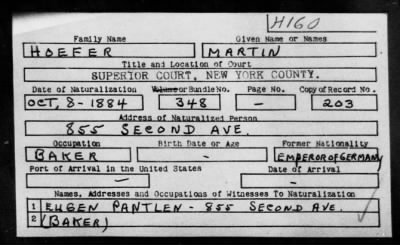 H160
Family Name Given Name or Names
HOEFER MARTIN
Title and Location of Court
SUPERIOR COURT, NEW YORK COUNTY.
Date of Naturalization Volume or Bundle No. Page No. Copy of Record No.
OCT, 8-1884 348 - 203
Address of Naturalized Person
855 SECOND AVE.
Occupation Birth Date or Age Former Nationality
BAKER - EMPEROR OF GERMANY
Port of Arrival in the United States Date of Arrival
- -
Names, Addresses and Occupations of Witnesses To Naturalization
1 EUGEN PANTLEN - 855 SECOND AVE.
2 (BAKER)